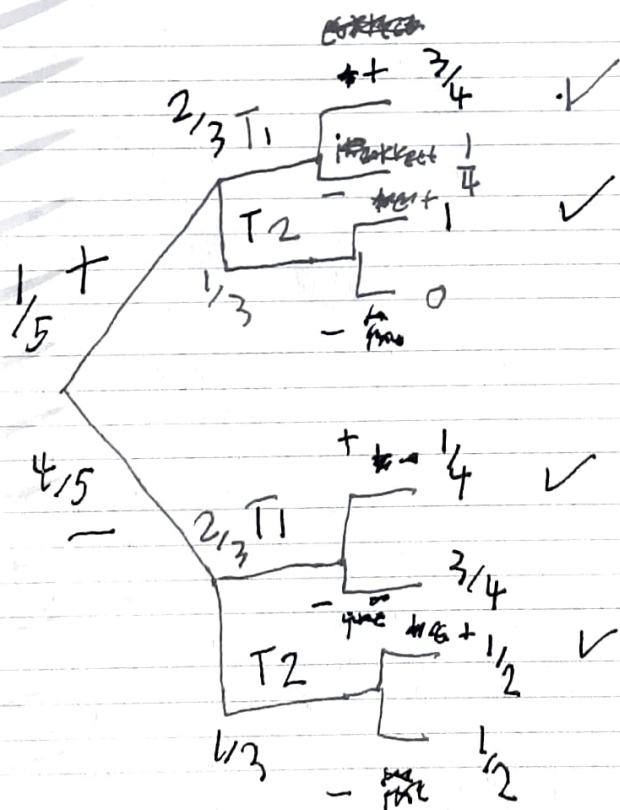 + 3/4 ✓
2/3 T1
1/4
-
+ 1 ✓
T2
1/5 +
1/3
0
-
+ 1/4 ✓
4/5
-
2/3 T1
3/4
-
+ 1/2 ✓
T2
1/3
1/2
-